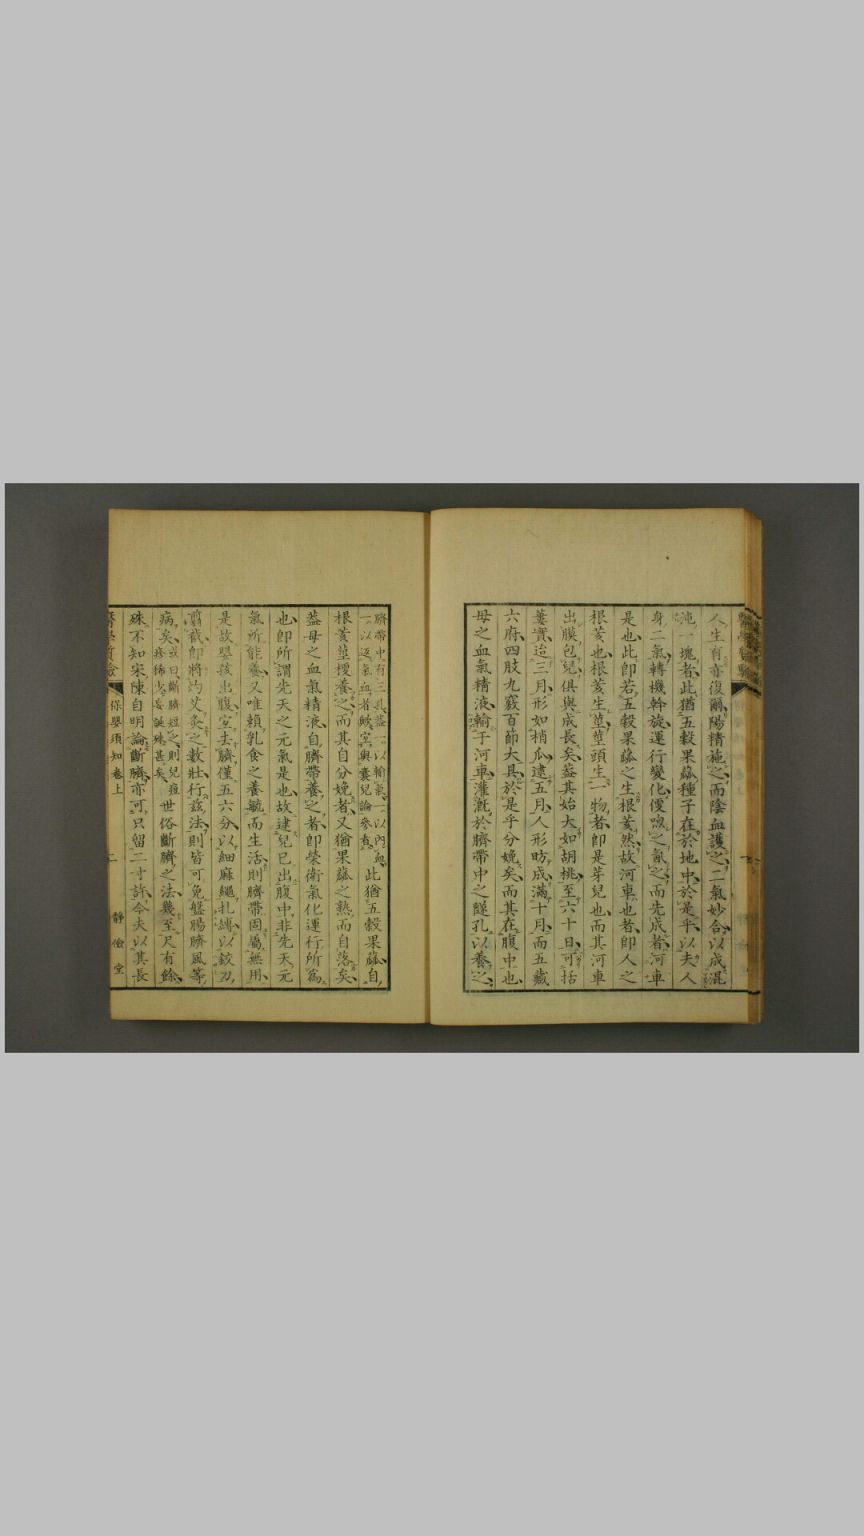 人生有亦復爾陽精施之而陰血護之二氣妙合以成混
沌一塊者此猶五穀果蓏種子在於地中於是乎以夫人
身二氣轉機斡旋運行變化便之而先成者河車
是也此即若五穀果蓏之生根荄然故河車也者即人之
根荄也根荄生莖莖頭生一物者即是芽兒也而其河車
出膜包兒俱與成長矣蓋其始大如胡桃至六十日可括
蔞實迨三月形如梢瓜逮五月人形昉成滿十月而五藏
六府四肢九竅百節大具於是乎分娩矣而其在腹中也
母之血氣精液輸于河車灌漑於臍帶中之隧孔以養之
臍帶中有三孔蓋一以輸氣一以內血
一以返氣血者與囊兒論參看
此猶五穀果蓏自
根荄莖梗養之而其自分娩者又猶果蓏之熟而自落矣
蓋母之血氣精液自臍帶養之者即榮衛氣化運行所爲
也即所謂先天之元氣是也故逮兒已出腹中非先天元
氣所能養又唯頼乳食之養毓而生活則臍帶固屬無用
是故嬰孩出腹室去臍僅五六分以細麻繩扎縛以鉸刀
剪截即將灼艾灸之數壯行茲法則皆可免盤腸臍風等
病矣
或曰斷臍短之則兒痘
疹稀少妄誕殊甚矣
世俗斷臍之法幾至尺有餘
殊不知宋陳自明論斷臍亦可只留二寸許今夫以其長
保嬰須知卷上
二
靜儉堂